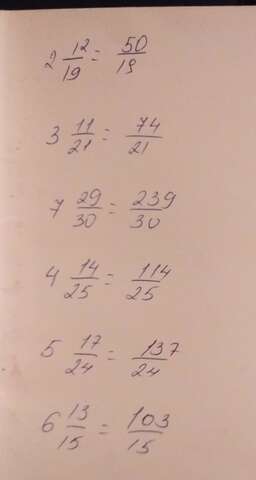 2 12/19 = 50/19
3 11/21 = 74/21
7 29/30 = 239/30
4 14/25 = 114/25
5 17/24 = 137/24
6 13/15 = 103/15